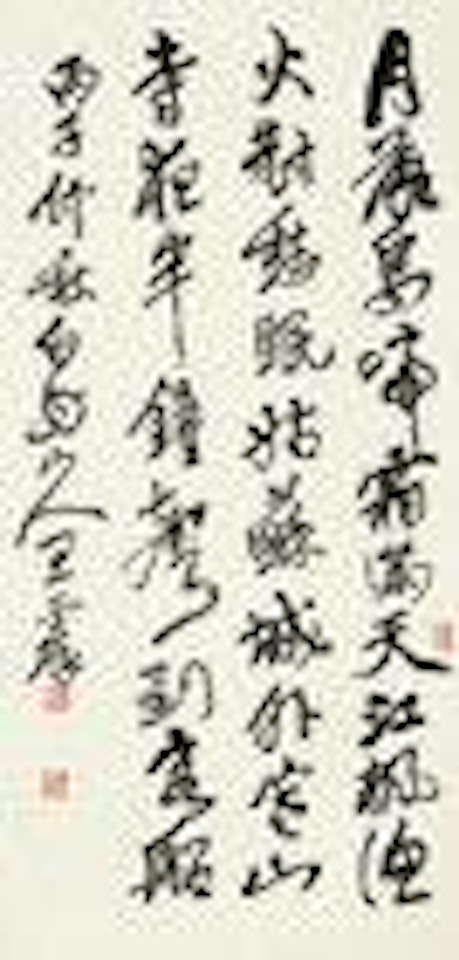 月落烏啼霜滿天江楓漁
火對愁眠姑蘇城外寒山
寺夜半鐘聲到客船
丙子仲秋白山人王